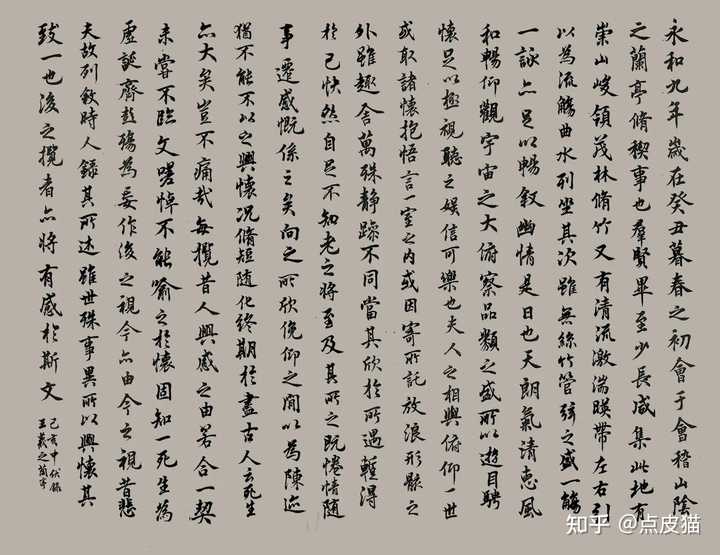 永和九年歲在癸丑暮春之初會于會稽山陰
之蘭亭脩稧事也羣賢畢至少長咸集此地有
崇山峻領茂林脩竹又有清流激湍暎帶左右引
以為流觴曲水列坐其次雖無絲竹管弦之盛一觴
一詠亦足以暢叙幽情是日也天朗氣清惠風
和暢仰觀宇宙之大俯察品類之盛所以遊目騁
懷足以極視聽之娛信可樂也夫人之相與俯仰一世
或取諸懷抱悟言一室之內或因寄所託放浪形骸之
外雖趣舍萬殊静躁不同當其欣於所遇輕得
於己快然自足不知老之將至及其所之既惓情隨
事遷感慨係之矣向之所欣俛仰之間以為陳迹
猶不能不以之興懷況脩短隨化終期於盡古人云死生
亦大矣豈不痛哉每攬昔人興感之由若合一契
未嘗不臨文嗟悼不能喻之於懷固知一死生為
虛誕齊彭殤為妄作後之視今亦由今之視昔悲
夫故列敘時人錄其所述雖世殊事異所以興懷其
致一也後之攬者亦將有感於斯文
己亥中伏錄
王羲之蘭亭
知乎 @点皮猫